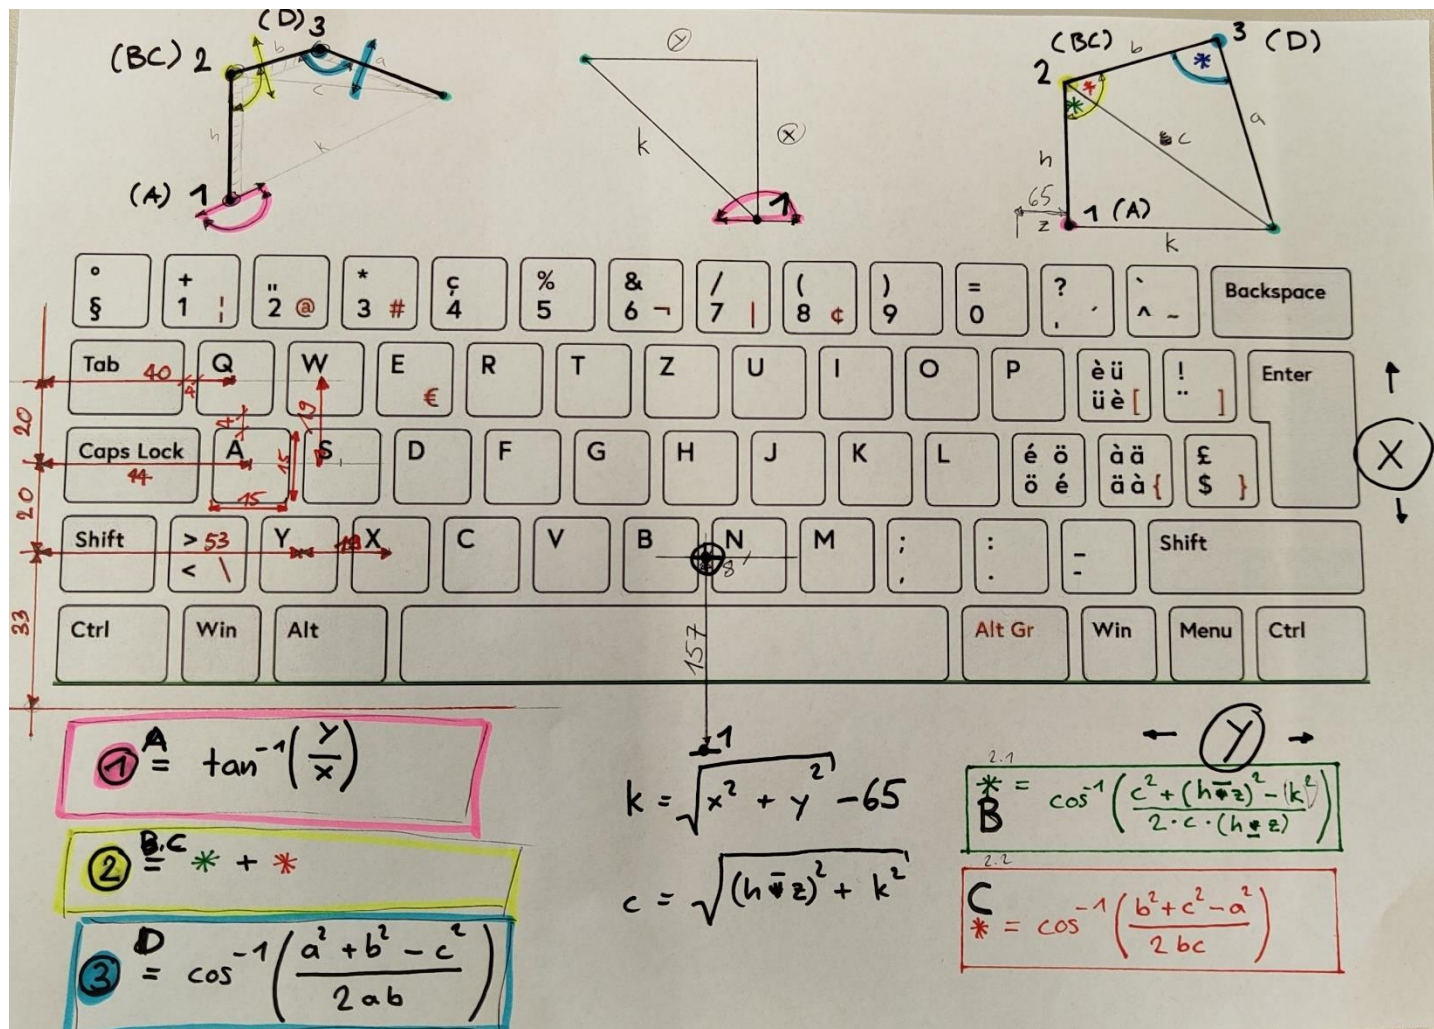 (D) 3
(BC) 2
b
a
c
h
k
(A) 1
y
k
x
1
(BC)
b
3 (D)
2
*
*
*
a
c
h
65
z
1 (A)
k
° §
+ 1 ¦
" 2 @
* 3 #
ç 4
% 5
& 6 ¬
/ 7 |
( 8 ¢
) 9
= 0
? ' ´
` ^ ~
Backspace
Tab 40
4
Q
W
E €
R
T
Z
U
I
O
P
è ü
ü è [
! ¨ ]
Enter
X
20
4
19
Caps Lock
44
A
15
15
S
D
F
G
H
J
K
L
é ö
ö é
à ä
ä à {
£
$ }
20
Shift
> 53
< \
Y
X
C
V
B
N
8
M
; ,
: .
_ -
Shift
33
Ctrl
Win
Alt
157
Alt Gr
Win
Menu
Ctrl
1
Y
1 A = tan⁻¹(y/x)
2 B,C = * + *
3 D = cos⁻¹((a² + b² - c²)/(2ab))
k = √(x² + y²) - 65
c = √((h - z)² + k²)
2.1
* B = cos⁻¹((c² + (h - z)² - (k²))/(2·c·(h - z)))
2.2
C * = cos⁻¹((b² + c² - a²)/(2bc))